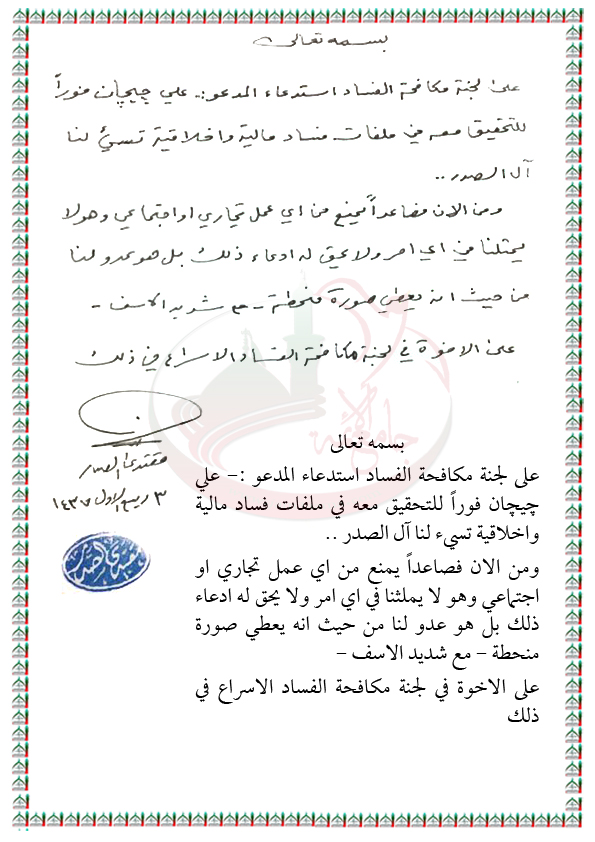 بسمه تعالى
على لجنة مكافحة الفساد استدعاء المدعو :ـ علي چيچان فوراً
للتحقيق معه في ملفات فساد مالية واخلاقية تسيئ لنا
آل الصدر ..
ومن الان فصاعداً يمنع من اي عمل تجاري او اجتماعي وهو لا
يمثلنا في اي امر ولا يحق له ادعاء ذلك بل هو عدو لنا
من حيث انه يعطي صورة منحطة – مع شديد الاسف –
على الاخوة في لجنة مكافحة الفساد الاسراع في ذلك
مقتدى الصدر
٣ ربيع الاول ١٤٣٧
بسمه تعالى
على لجنة مكافحة الفساد استدعاء المدعو :– علي
چيچان فوراً للتحقيق معه في ملفات فساد مالية
واخلاقية تسيء لنا آل الصدر ..
ومن الان فصاعداً يمنع من اي عمل تجاري او
اجتماعي وهو لا يملثنا في اي امر ولا يحق له ادعاء
ذلك بل هو عدو لنا من حيث انه يعطي صورة
منحطة – مع شديد الاسف –
على الاخوة في لجنة مكافحة الفساد الاسراع في
ذلك